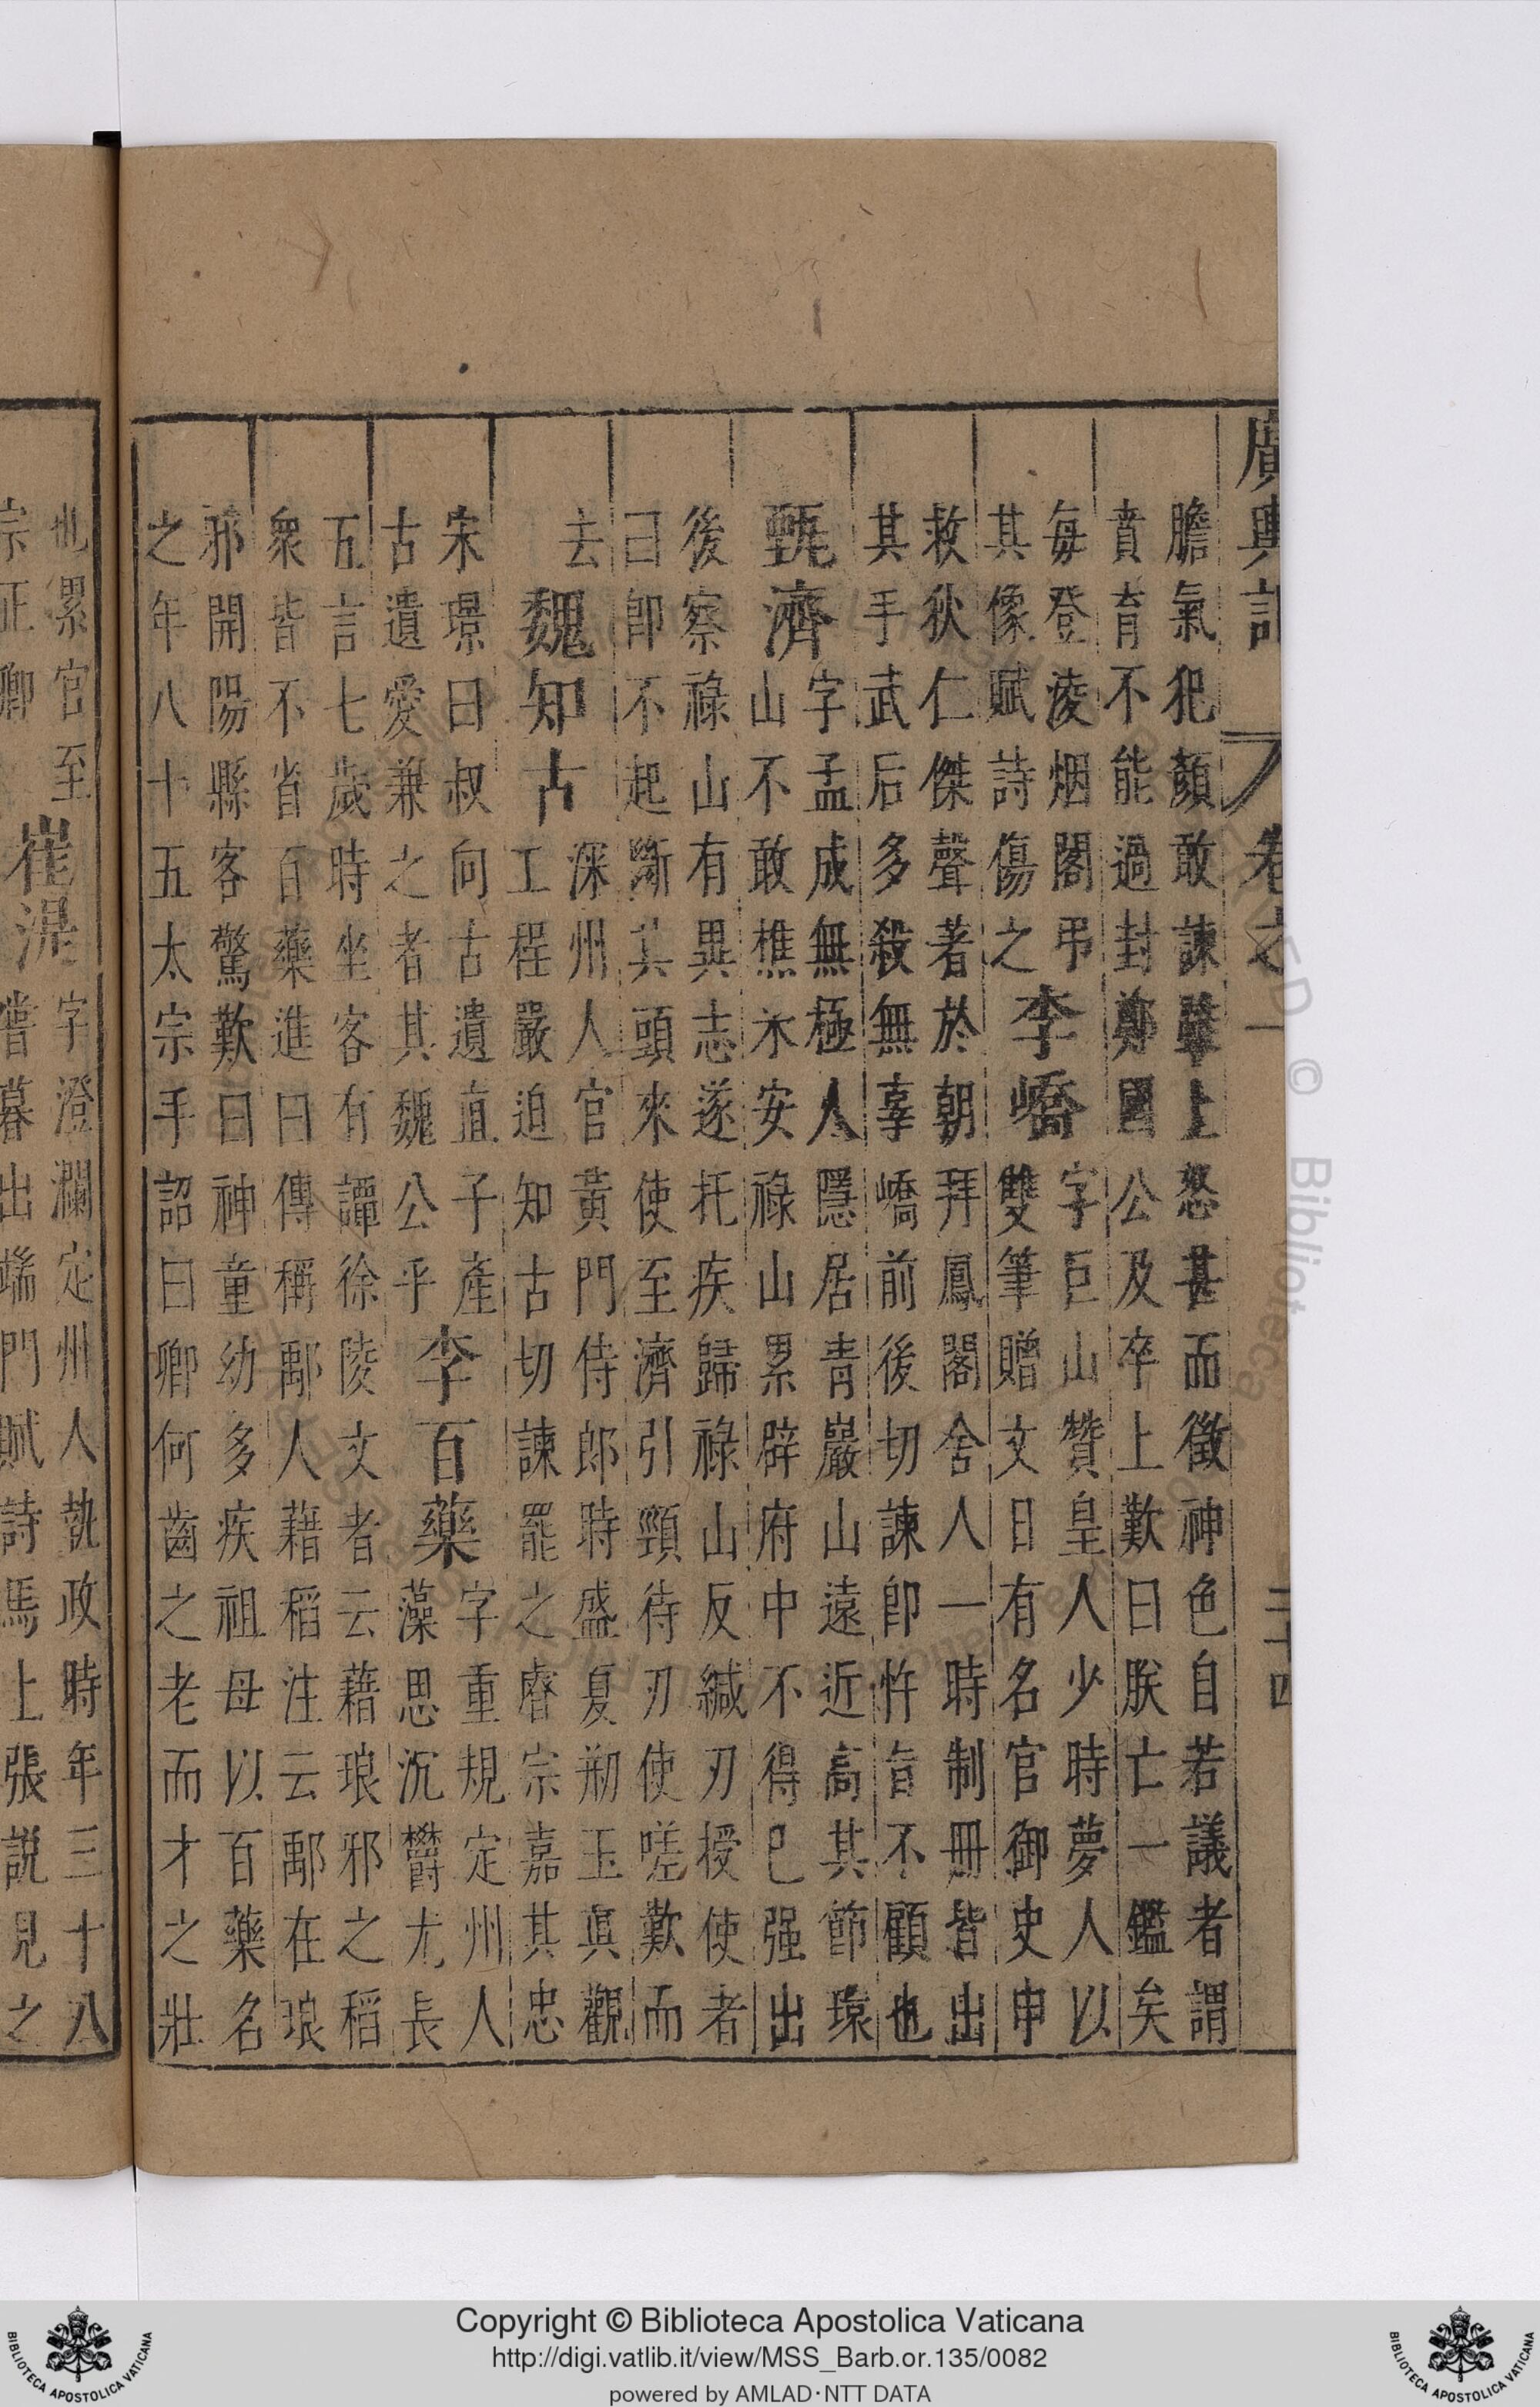 廣輿記 卷之一 三十四
膽氣犯顏敢諫雖上怒甚而徵神色自若議者謂
賁育不能過封鄭國公及卒上歎曰朕亡一鑑矣
每登凌烟閣弔
其像賦詩傷之
李嶠
字巨山贊皇人少時夢人以
雙筆贈文日有名官御史申
救狄仁傑聲著於朝拜鳳閣舍人一時制冊皆出
其手武后多殺無辜嶠前後切諫即忤旨不顧也
甄濟
字孟成無極人隱居青巖山遠近高其節環
山不敢樵木安祿山累辟府中不得已强出
後察祿山有異志遂托疾歸祿山反緘刃授使者
曰即不起斷其頭來使至濟引頸待刃使嗟歎而
去
魏知古
深州人官黃門侍郎時盛夏剏玉眞觀
工程嚴迫知古切諫罷之睿宗嘉其忠
宋璟曰叔向古遺直子產
古遺愛兼之者其魏公乎
李百藥
字重規定州人
藻思沉欝尤長
五言七歲時坐客有譚徐陵文者云藉琅邪之稻
衆皆不省百藥進曰傳稱鄅人藉稻注云鄅在琅
邪開陽縣客驚歎曰神童幼多疾祖母以百藥名
之年八十五太宗手詔曰卿何齒之老而才之壯
也累官至
宗正卿
崔湜
字澄瀾定州人執政時年三十八
嘗暮出端門賦詩馬上張説見之
Copyright © Biblioteca Apostolica Vaticana
http://digi.vatlib.it/view/MSS_Barb.or.135/0082
powered by AMLAD·NTT DATA
BIBLIOTECA APOSTOLICA VATICANA
BIBLIOTECA APOSTOLICA VATICANA